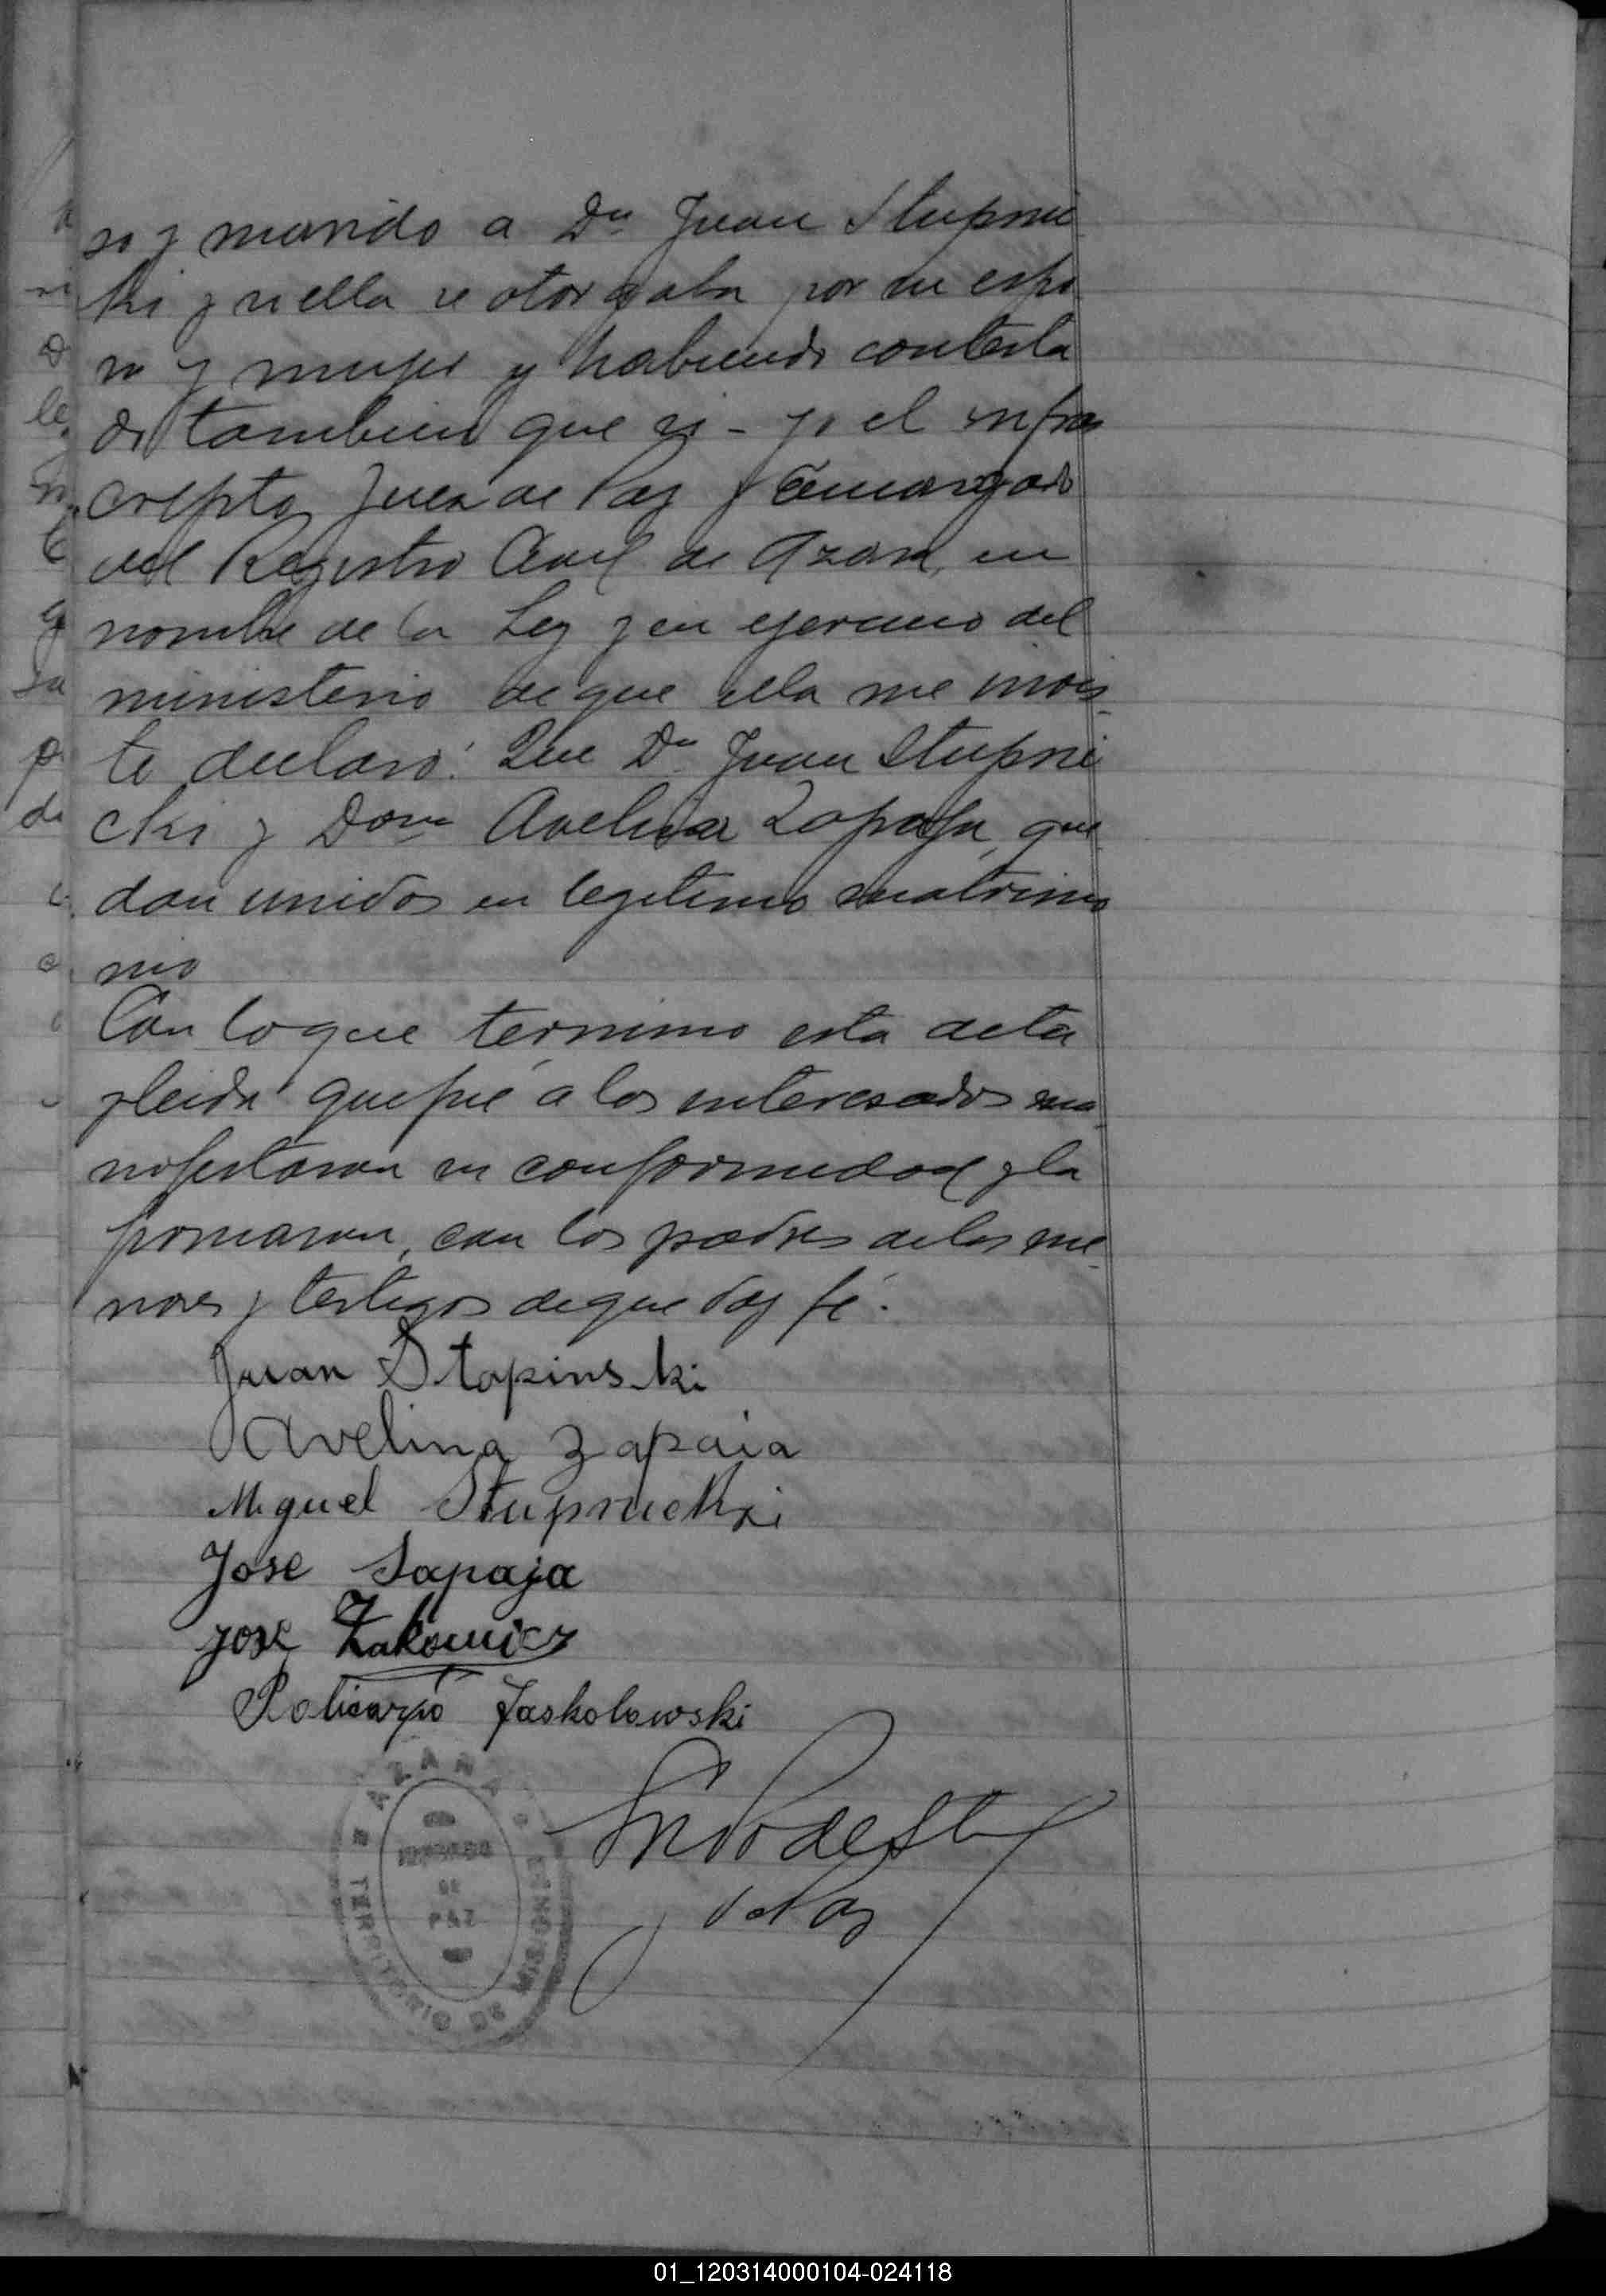 so y marido a Dn Juan Stupni
ki y si ella se otorgaba por su espo
sa y mujer y habiendo contesta
do tambien que si - yo el infras
cripto Juez de Paz y Encargado
del Registro Civil de Azara, en
nombre de la Ley y en ejercicio del
ministerio de que ella me invis
te declaro: Que Dn Juan Stupni
cki y Dona Avelina Zapaja, que
dan unidos en legitimo matrimo
nio
Con lo que termino esta acta
y leida que fué a los interesados ma
nifestaron su conformidad y la
firmaron, con los padres de los me
nores y testigos de que doy fé.
Juan Stopinski
Avelina Zapaia
Miguel Stupnicki
Jose Sapaja
Jose Zakowicz
Policarpo Jaskolowski
AZARA
JUZGADO
DE
PAZ
TERRITORIO DE MISIONES
J de Paz
01_120314000104-024118